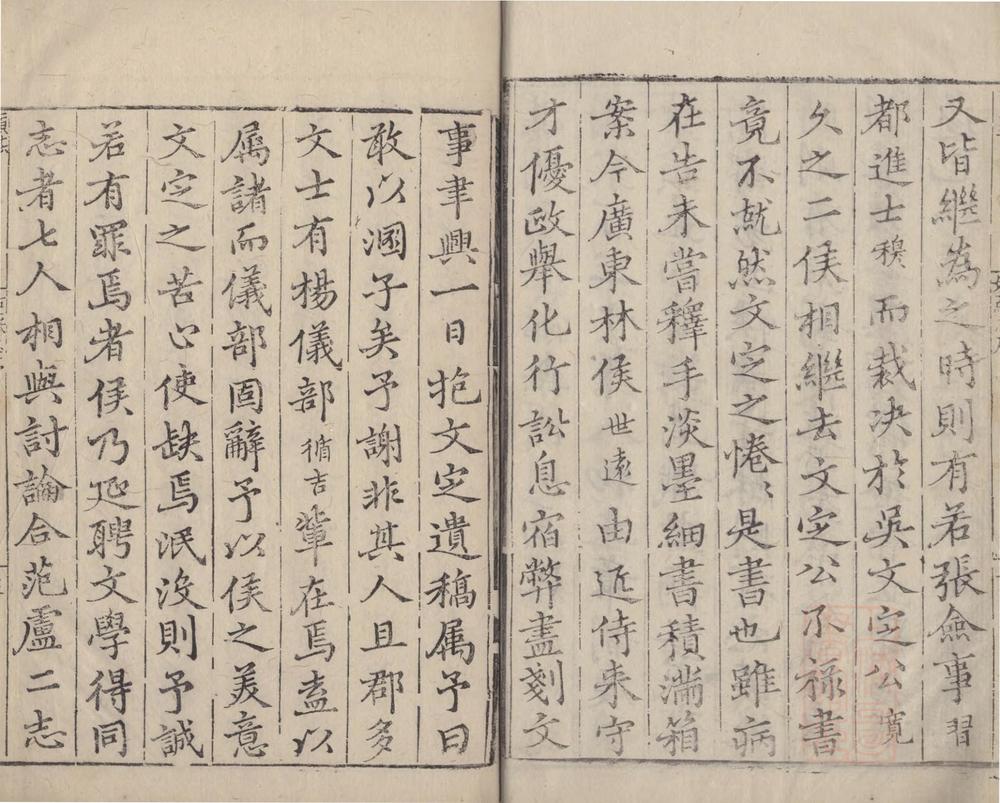 又皆繼為之時則有若張僉事習
都進士穆而裁決於吳文定公寬
久之二侯相繼去文定公不禄書
竟不就然文定之惓〻是書也雖病
在告未嘗釋手淡墨細書積滿箱
案今廣東林侯世遠由近侍来守
才優政舉化行訟息宿弊盡剗文
事聿興一日抱文定遺稿属予曰
敢以溷子矣予謝非其人且郡多
文士有楊儀部循吉軰在焉盍以
属諸而儀部固辭予以侯之美意
文定之苦心使缺焉泯没則予誠
若有罪焉者侯乃延聘文學得同
志者七人相與討論合范盧二志